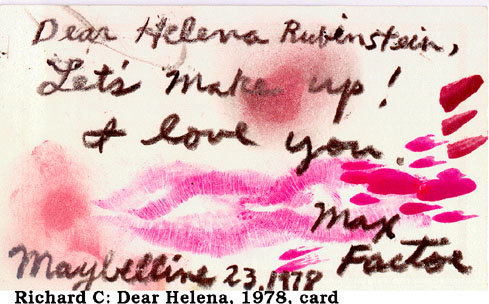 Dear Helena Rubinstein,
Let's make up!
I love you.
Max
Factor
Maybelline 23, 1978
Richard C: Dear Helena, 1978, card